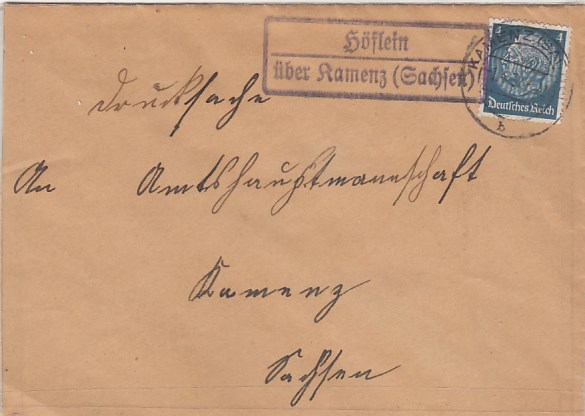 Höflein
über Kamenz (Sachsen)
KAMENZ (SA
b
4
Deutsches Reich
Drucksache
An Amtshauptmannschaft
Kamenz
Sachsen